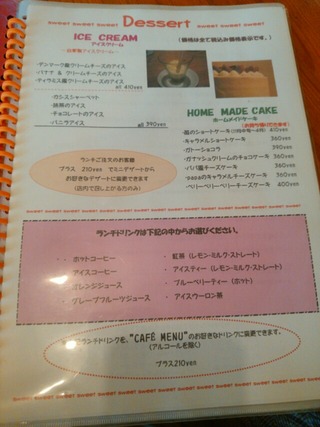 sweet sweet sweet Dessert sweet sweet sweet
ICE CREAM
アイスクリーム
(価格は全て税込み価格表示です。)
・デンマーク産クリームチーズのアイス
・バナナ & クリームチーズのアイス
・ティラミス風クリームチーズのアイス
all 410yen
・カシスシャーベット
・抹茶のアイス
・チョコレートのアイス
・バニラアイス
all 390yen
HOME MADE CAKE
ホームメイドケーキ
(お持ち帰りできます)
410yen
・キャラメルショートケーキ 360yen
・ガトーショコラ 390yen
・ガナッシュクリームのチョコケーキ 360yen
・パパ風チーズケーキ 360yen
・papaのキャラメルチーズケーキ 360yen
・ベリーベリーベリーチーズケーキ 400yen
ランチご注文のお客様
プラス 210yen でミニデザートから
お好きなデザートに変更できます
(店内で召し上がる方のみ)
ランチドリンクは下記の中からお選びください。
・ホットコーヒー
・アイスコーヒー
・オレンジジュース
・グレープフルーツジュース
・紅茶 (レモン・ミルク・ストレート)
・アイスティー (レモン・ミルク・ストレート)
・ブルーベリーティー (ホット)
・アイスウーロン茶
ランチドリンクを、"CAFÉ MENU"のお好きなドリンクに変更できます。
(アルコールを除く)
プラス210yen